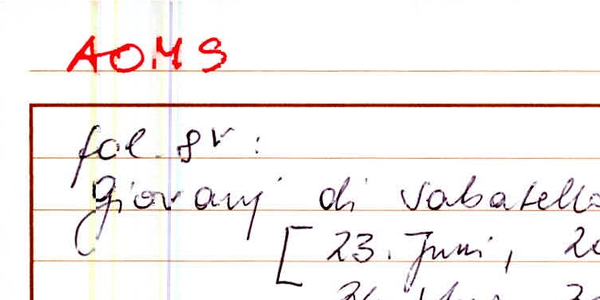 AOMS
fol. 8v:
Giovanj di Sabatello
[ 23. Juni,